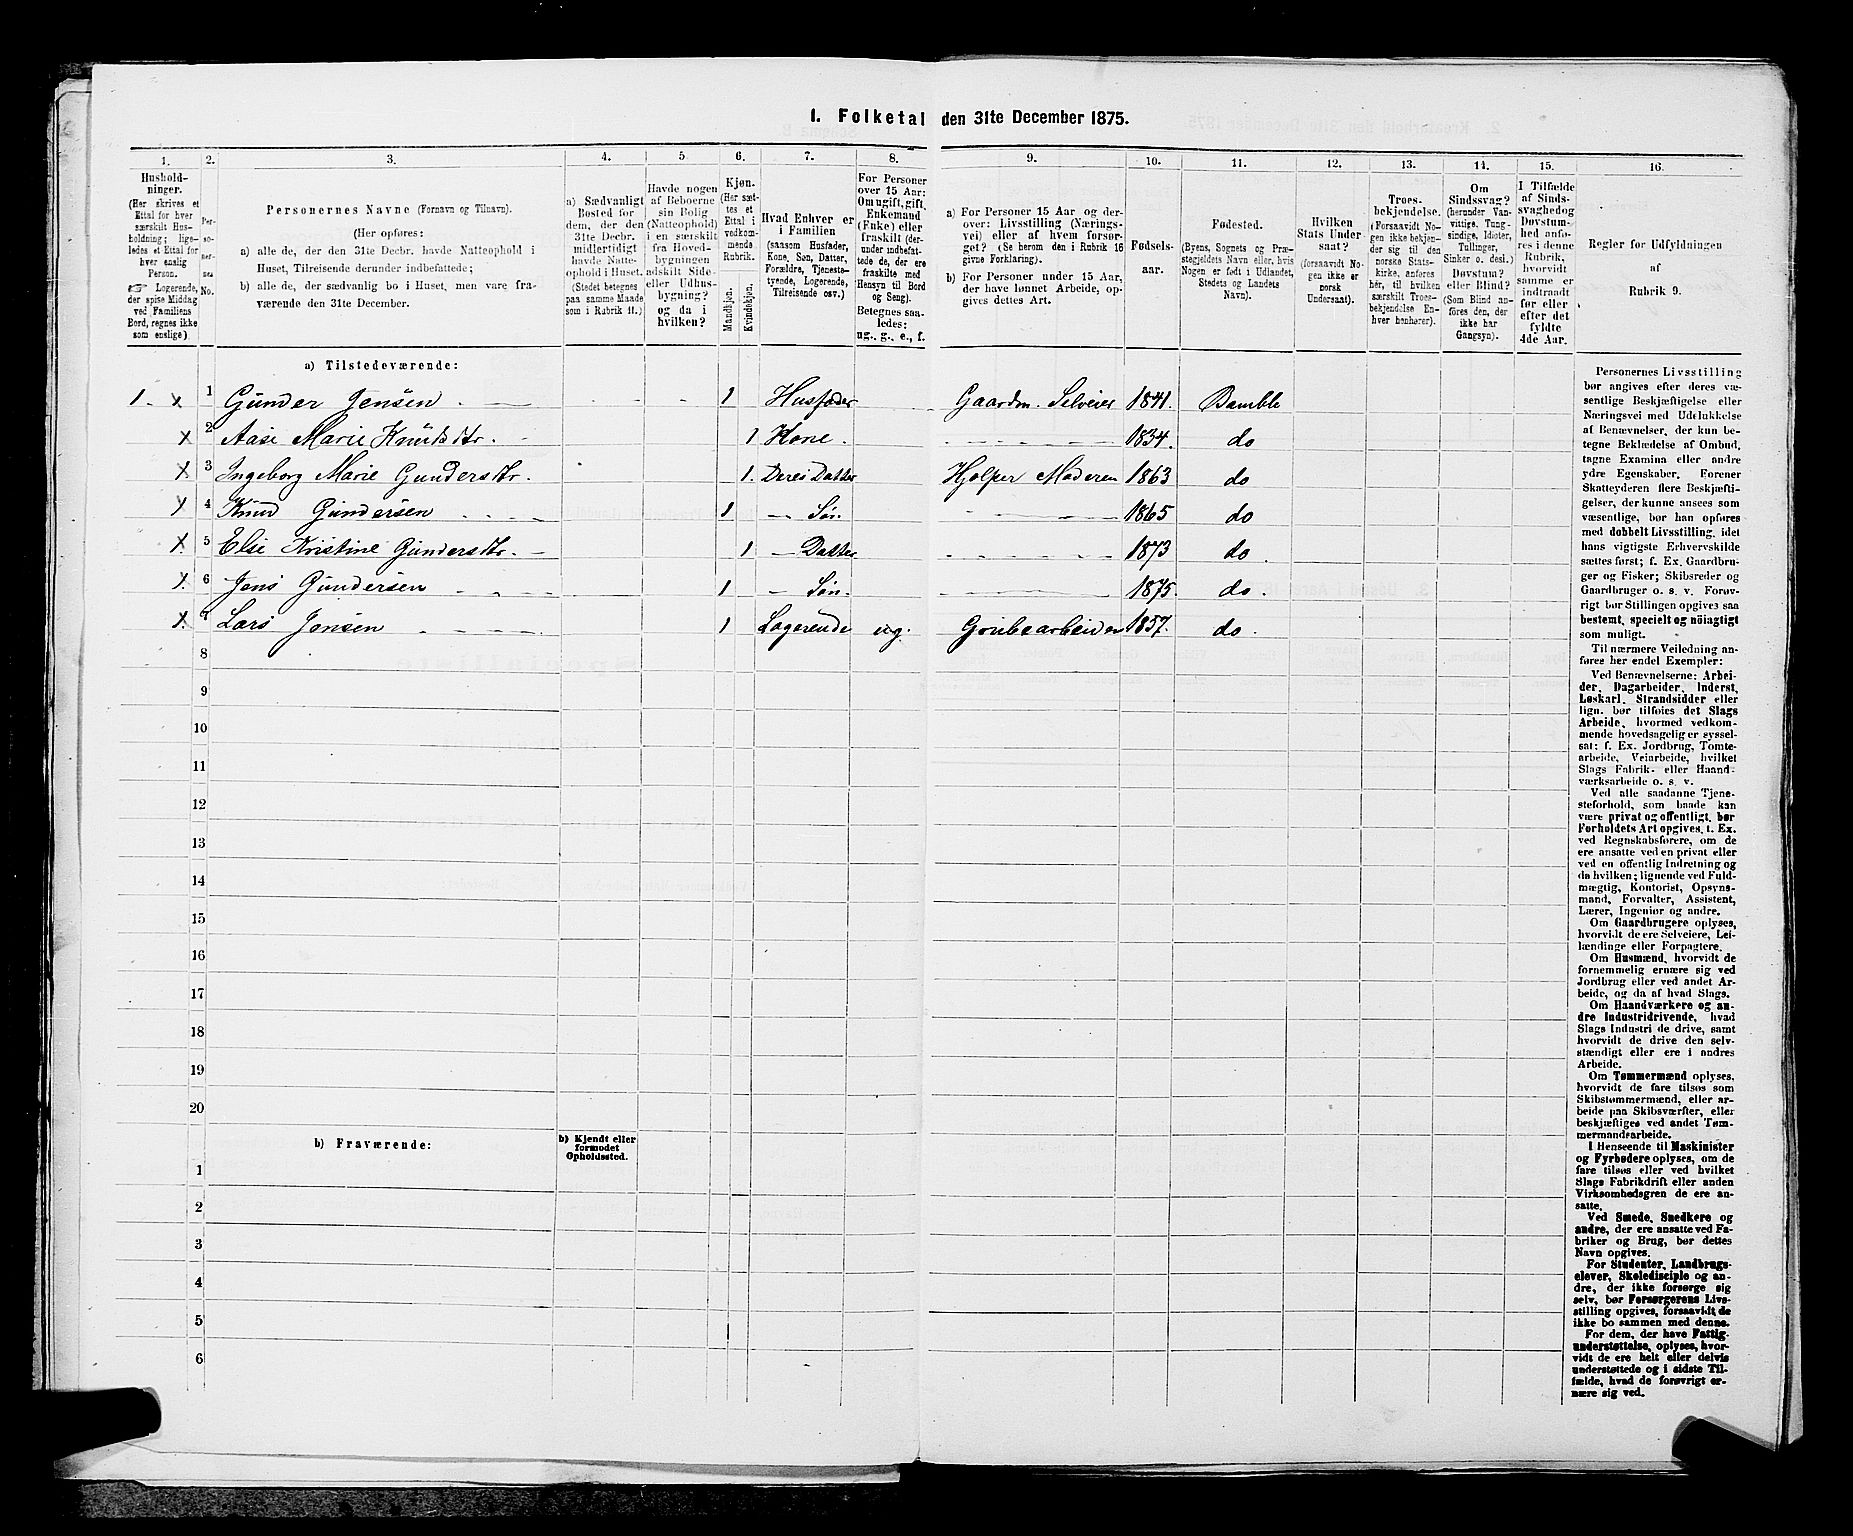 1. Folketal den 31te December 1875.
1. 2. 3. 4. 5. 6. 7. 8. 9. 10. 11. 12. 13. 14. 15. 16.
Hushold-
ninger.
(Her skrives et
Ettal for hver
særskilt Hus-
holdning; lige-
ledes et Ettal for
hver enslig
Person.
☞ Logerende,
der spise Middag
ved Familiens
Bord, regnes ikke
som enslige)
Per-
so-
ner-
nes
No.
Personernes Navne (Fornavn og Tilnavn).
(Her opføres:
a) alle de, der den 31te Decbr. havde Natteophold i
Huset, Tilreisende derunder indbefattede;
b) alle de, der sædvanlig bo i Huset, men vare fra-
værende den 31te December.
a) Sædvanligt
Bosted for
dem, der den
31te Decbr.
midlertidigt
havde Natte-
ophold i Huset.
(Stedet betegnes
paa samme Maade
som i Rubrik 11.)
Havde nogen
af Beboerne
sin Bolig
(Natteophold)
i en særskilt
fra Hoved-
bygningen
adskilt Side-
eller Udhus-
bygning?
og da i
hvilken?
Kjøn.
(Her sæt-
tes et
Ettal i
vedkom-
mende
Rubrik.
Mandkjøn.
Kvindekjøn.
Hvad Enhver er
i Familien
(saasom Husfader,
Kone, Søn, Datter,
Forældre, Tjeneste-
tyende, Logerende,
Tilreisende osv.)
For Personer
over 15 Aar:
Om ugift, gift,
Enkemand
(Enke) eller
fraskilt (der-
under indbefat-
tede de, der ere
fraskilte med
Hensyn til Bord
og Seng).
Betegnes saa-
ledes:
ug., g., e., f.
a) For Personer 15 Aar og der-
over: Livsstilling (Nærings-
vei) eller af hvem forsør-
get? (Se herom den i Rubrik 16
givne Forklaring).
b) For Personer under 15 Aar,
der have lønnet Arbeide, op-
gives dettes Art.
Fødsels-
aar.
Fødested.
(Byens, Sognets og Præ-
stegjeldets Navn eller, hvis
Nogen er født i Udlandet,
Stedets og Landets
Navn).
Hvilken
Stats Under
saat?
(forsaavidt No-
gen ikke er
norsk
Undersaat).
Troes-
bekjendelse.
(Forsaavidt No-
gen ikke bekjen-
der sig til den
norske Stats-
kirke, anføres
her, til hvilken
særskilt Troes-
bekjendelse En-
hver henhører).
Om
Sindssvag?
(herunder Van-
vittige, Tung-
sindige, Idioter,
Tullinger,
Sinker o. desl.)
Døvstum?
eller Blind?
(Som Blind an-
føres den, der
ikke har
Gangsyn).
I Tilfælde
af Sinds-
svaghed og
Døvstum-
hed anfø-
res i denne
Rubrik,
hvorvidt
samme er
indtraadt
før eller
efter det
fyldte
4de Aar.
Regler for Udfyldningen
af
Rubrik 9.
a) Tilstedeværende:
1. x 1 Gunder Jensen 1 Husfader Gaardm. Selveier 1841. Bamble
x 2 Aase Marie Knudsdtr. 1 Kone. 1834. do
x 3 Ingeborg Marie Gundersdtr. 1. Deres Datter Hjelper Moderen 1863 do
x 4 Knud Gundersen 1 Søn 1865 do
x 5 Else Kristine Gundersdtr. 1 Datter 1873 do
x. 6 Jens Gundersen 1 Søn. 1875. do.
x. 7 Lars Jensen 1 Logerende ug. Grubearbeider 1857. do.
8
9
10
11
12
13
14
15
16
17
18
19
20
b) Fraværende:
b) Kjendt eller
formodet
Opholdssted.
1
2
3
4
5
6
Personernes Livsstilling
bør angives efter deres væ-
sentlige Beskjæftigelse eller
Næringsvei med Udelukkelse
af Benævnelser, der kun be-
tegne Beklædelse af Ombud,
tagne Examina eller andre
ydre Egenskaber. Forener
Skatteyderen flere Beskjæfti-
gelser, der kunne ansees som
væsentlige, bør han opføres
med dobbelt Livsstilling, idet
hans vigtigste Erhvervskilde
sættes først; f. Ex. Gaardbru-
ger og Fisker; Skibsreder og
Gaardbruger o. s. v. Forøv-
rigt bør Stillingen opgives saa
bestemt, specielt og nöiagtigt
som muligt.
Til nærmere Veiledning an-
føres her endel Exempler:
Ved Benævnelserne: Arbei-
der, Dagarbeider, Inderst,
Løskarl, Strandsidder eller
lign. bør tilføies det Slags
Arbeide, hvormed vedkom-
mende hovedsagelig er syssel-
sat; f. Ex. Jordbrug, Tomte-
arbeide, Veiarbeide, hvilket
Slags Fabrik- eller Haand-
værksarbeide o. s. v.
Ved alle saadanne Tjene-
steforhold, som baade kan
være privat og offentligt, bør
Forholdets Art opgives, t. Ex.
ved Regnskabsførere, om de
ere ansatte ved en privat eller
ved en offentlig Indretning og
da hvilken; lignende ved Fuld-
mægtig, Kontorist, Opsyns-
mand, Forvalter, Assistent,
Lærer, Ingeniør og andre.
Om Gaardbrugere oplyses,
hvorvidt de ere Selveiere, Lei-
lændinge eller Forpagtere.
Om Husmænd, hvorvidt de
fornemmelig ernære sig ved
Jordbrug eller ved andet Ar-
beide, og da af hvad Slags.
Om Haandværkere og an-
dre Industridrivende, hvad
Slags Industri de drive, samt
hvorvidt de drive den selv-
stændigt eller ere i andres
Arbeide.
Om Tømmermænd oplyses,
hvorvidt de fare tilsøs som
Skibstømmermænd, eller ar-
beide paa Skibsværfter, eller
beskjæftiges ved andet Tøm-
mermandsarbeide.
I Henseende til Maskinister
og Fyrbødere oplyses, om de
fare tilsøs eller ved hvilket
Slags Fabrikdrift eller anden
Virksomhedsgren de ere an-
satte.
Ved Smede, Snedkere og
andre, der ere ansatte ved Fa-
briker og Brug, bør dettes
Navn opgives.
For Studenter, Landbrugs-
elever, Skoledisciple og an-
dre, der ikke forsørge sig
selv, bør Forsørgerens Livs-
stilling opgives, forsaavidt de
ikke bo sammen med denne.
For dem, der have Fattig-
understøttelse, oplyses, hvor-
vidt de ere helt eller delvis
understøttede og i sidste Til-
fælde, hvad de forøvrigt er-
nære sig ved.